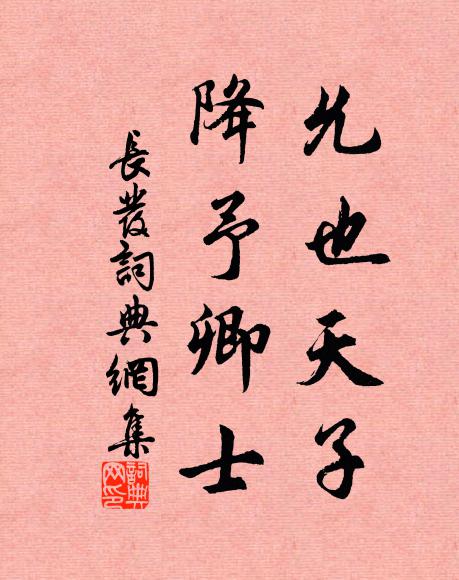 允也天子
降予卿士
長發詞典網集
詞典
网印